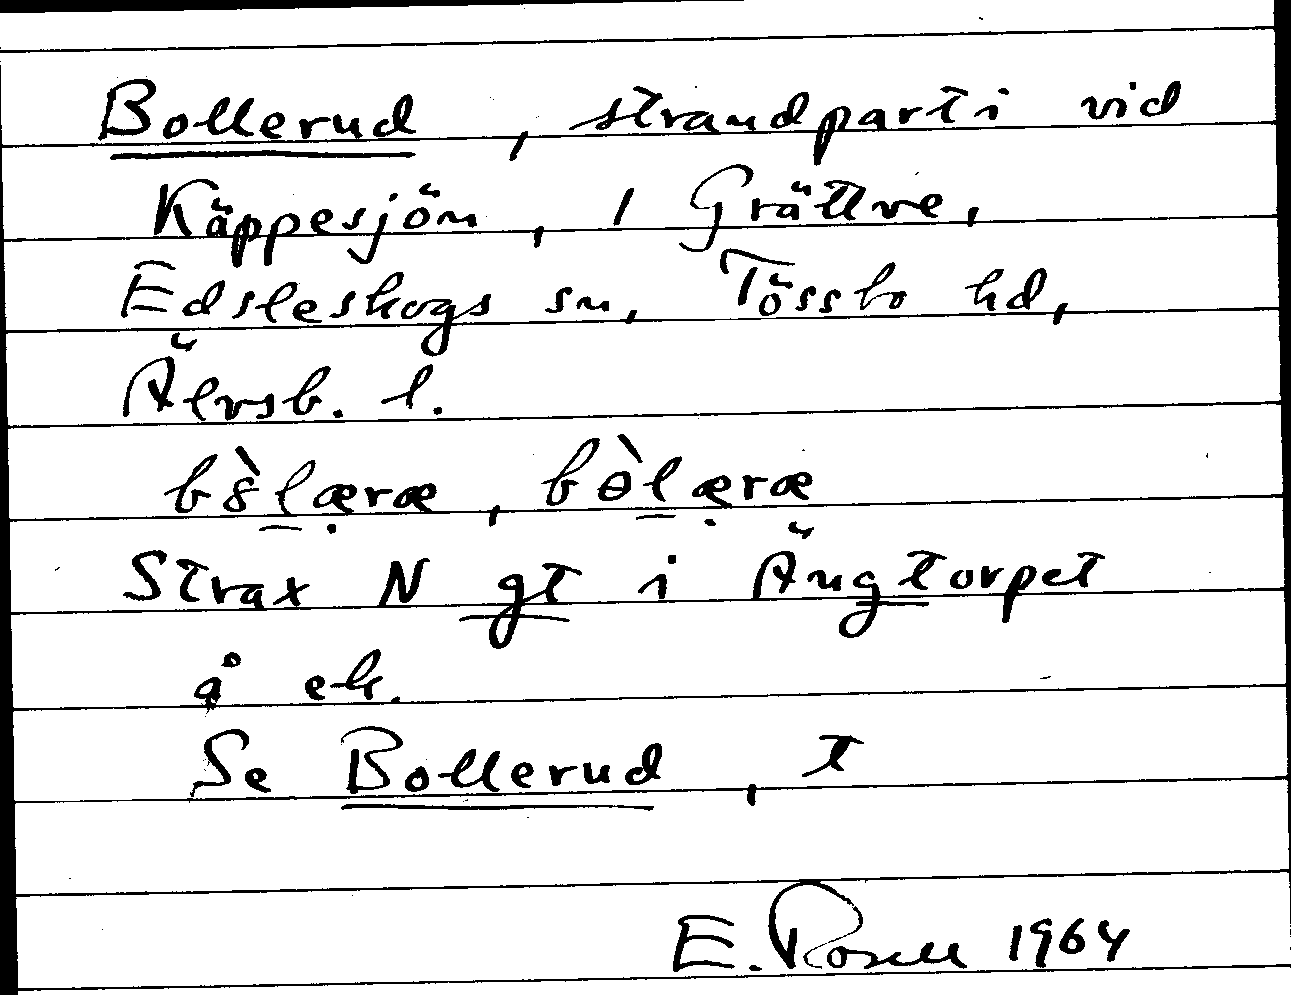 Bollerud, strandparti vid
Käppesjön, 1 Grättve,
Edsleskogs sn, Tössbo hd,
Älvsb. l.
bòlæ̣ræ, bɵ̀læ̣ræ
Strax N gt i Ängtorpet
å ek.
Se Bollerud, t
E. Rosell 1964